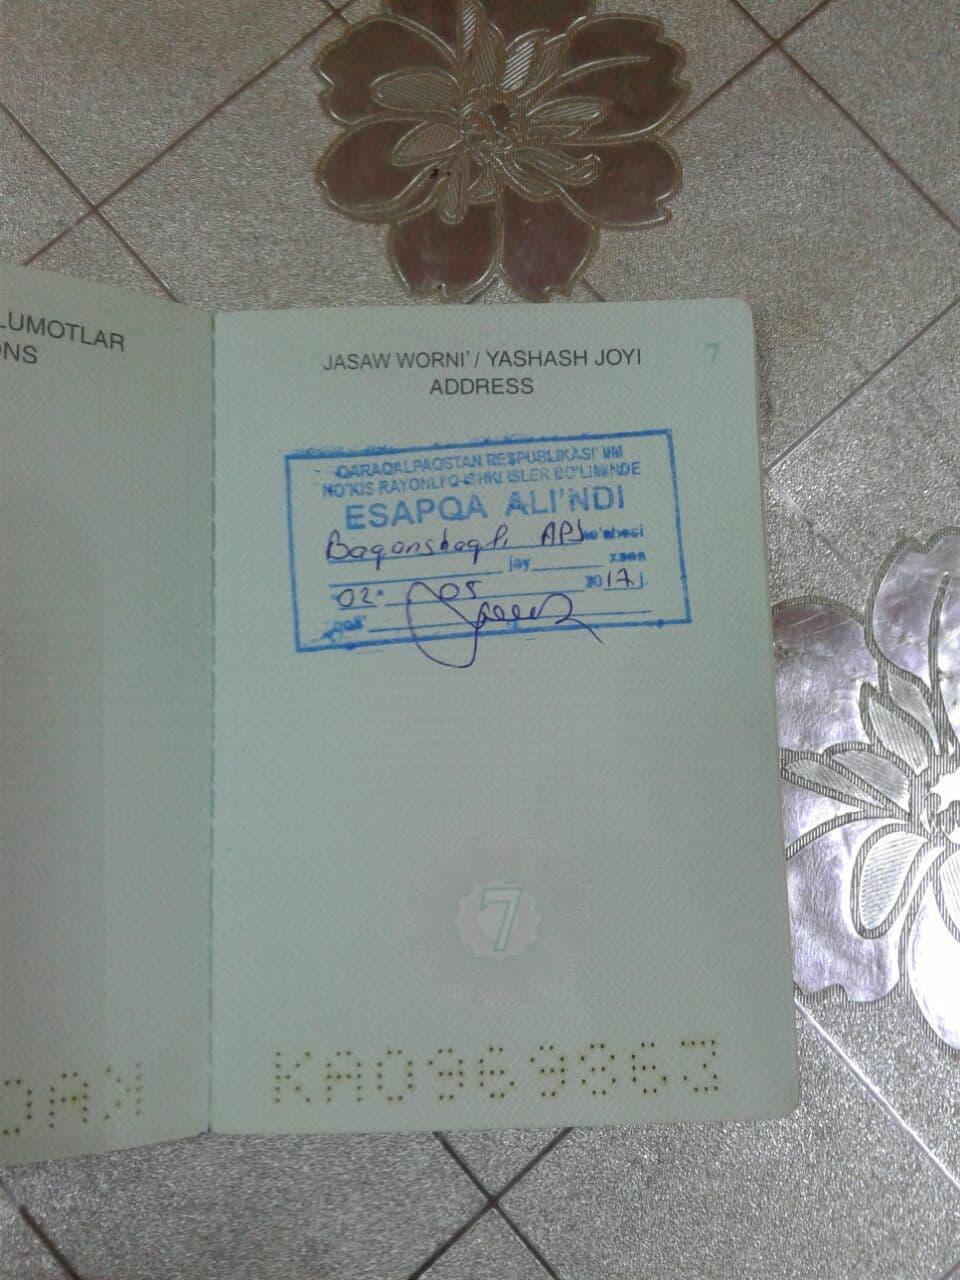 LUMOTLAR
ONS
JASAW WORNI' / YASHASH JOYI
ADDRESS
7
QARAQALPAQSTAN RESPUBLIKASI' IIM
NO'KIS RAYONLI'Q ISHKI ISLER BO'LIMINDE
ESAPQA ALI'NDI
APJ ko'shesi
jay xana
02. 05 2017 j.
qoli'
7
KA0969963